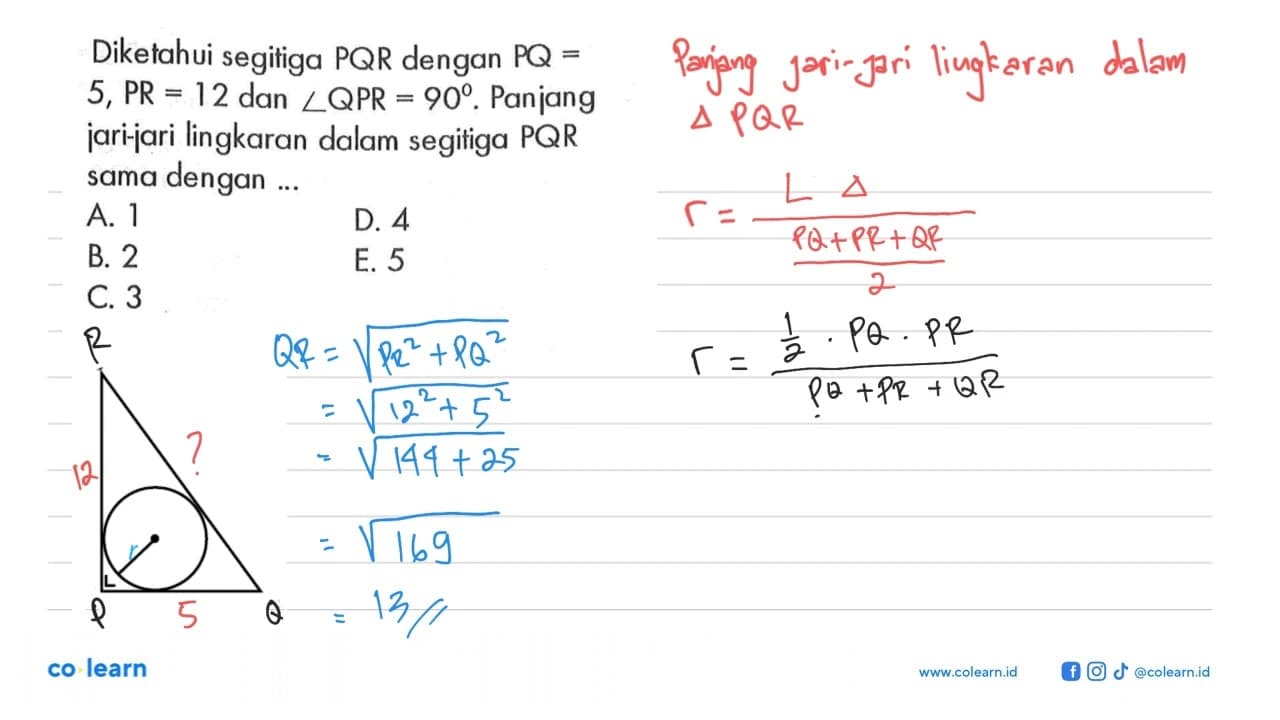 Diketahui segitiga PQR dengan PQ =
5, PR = 12 dan ∠QPR = 90⁰. Panjang
jari-jari lingkaran dalam segitiga PQR
sama dengan ...
A. 1
B. 2
C. 3
D. 4
E. 5
R
12
?
r
P
5
Q
QR = √PR² + PQ²
= √12² + 5²
= √144 + 25
= √169
= 13//
Panjang jari-jari lingkaran dalam
Δ PQR
r = L Δ
PQ + PR + QR
2
r = 1/2 . PQ . PR
PQ + PR + QR
co learn
www.colearn.id
@colearn.id